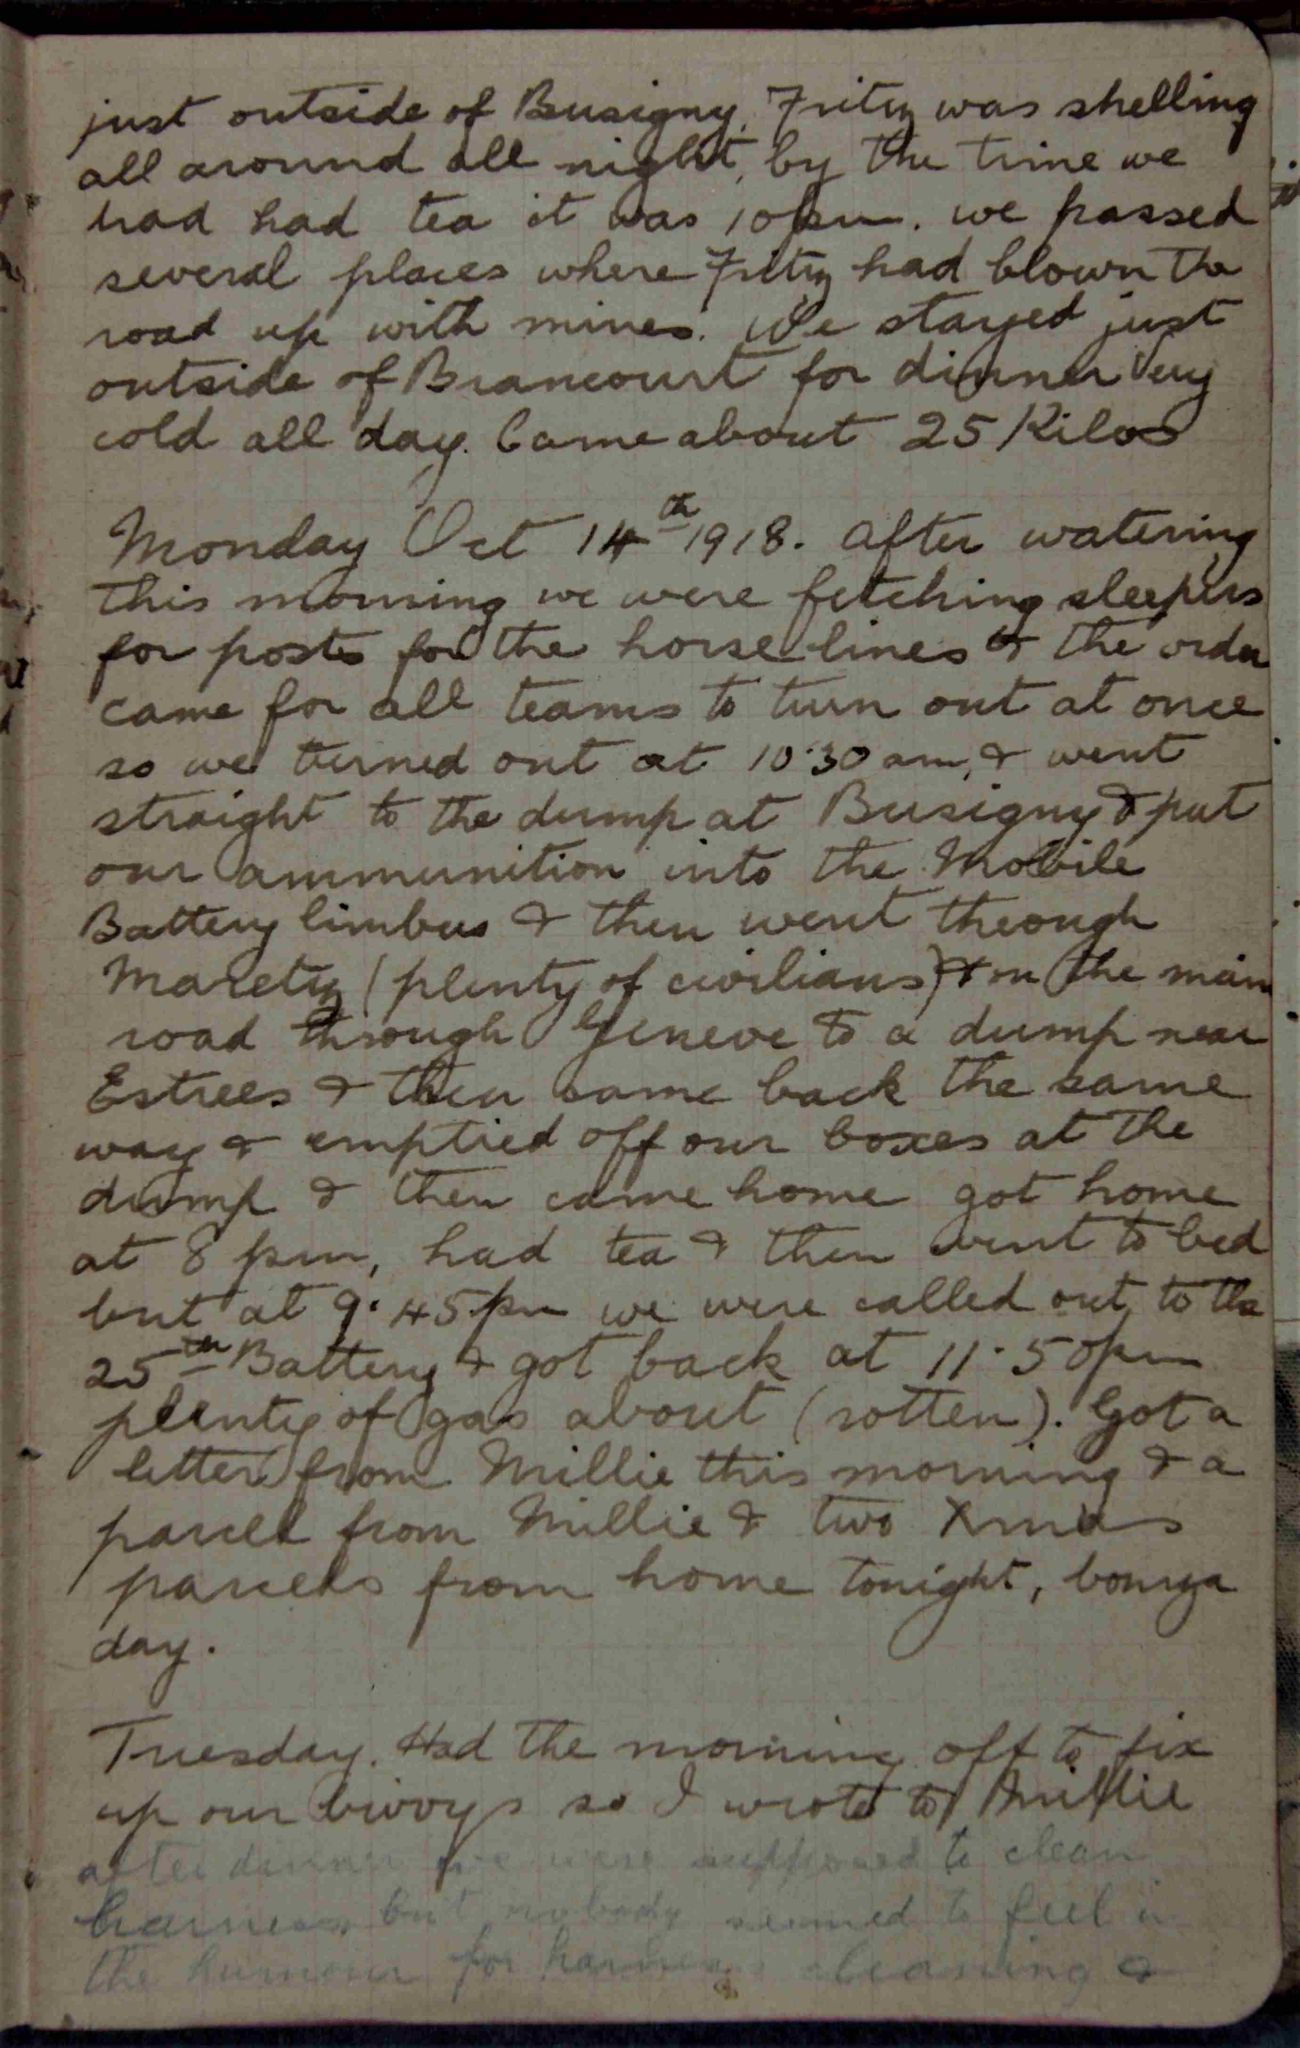 just outside of Busigny. Fritz was shelling
all around all night, by the time we
had had tea it was 10pm. we passed
several places where Fritz had blown the
road up with mines. We stayed just
outside of Brancourt for dinner Very
cold all day. Came about 25 Kilos
Monday Oct 14th 1918. After watering
this morning we were fetching sleepers
for posts for the horse lines & the order
came for all teams to turn out at once
so we turned out at 10.30 am, & went
straight to the dump at Busigny & put
our ammunition into the Mobile
Battery limbers & then went through
Maretz (plenty of civilians) & on the main
road through Geneve to a dump near
Estrees & then came back the same
way & emptied off our boxes at the
dump & then came home got home
at 8 pm, had tea & then went to bed
but at 9.45pm we were called out to the
25th Battery & got back at 11.50pm
plenty of gas about (rotten). Got a
letter from Millie this morning & a
parcel from Millie & two Xmas
parcels from home tonight, bonza
day.
Tuesday. Had the morning off to fix
up our bivvys so I wrote to Millie
after dinner we were supposed to clean
harness but nobody seemed to feel in
the humour for harness cleaning &